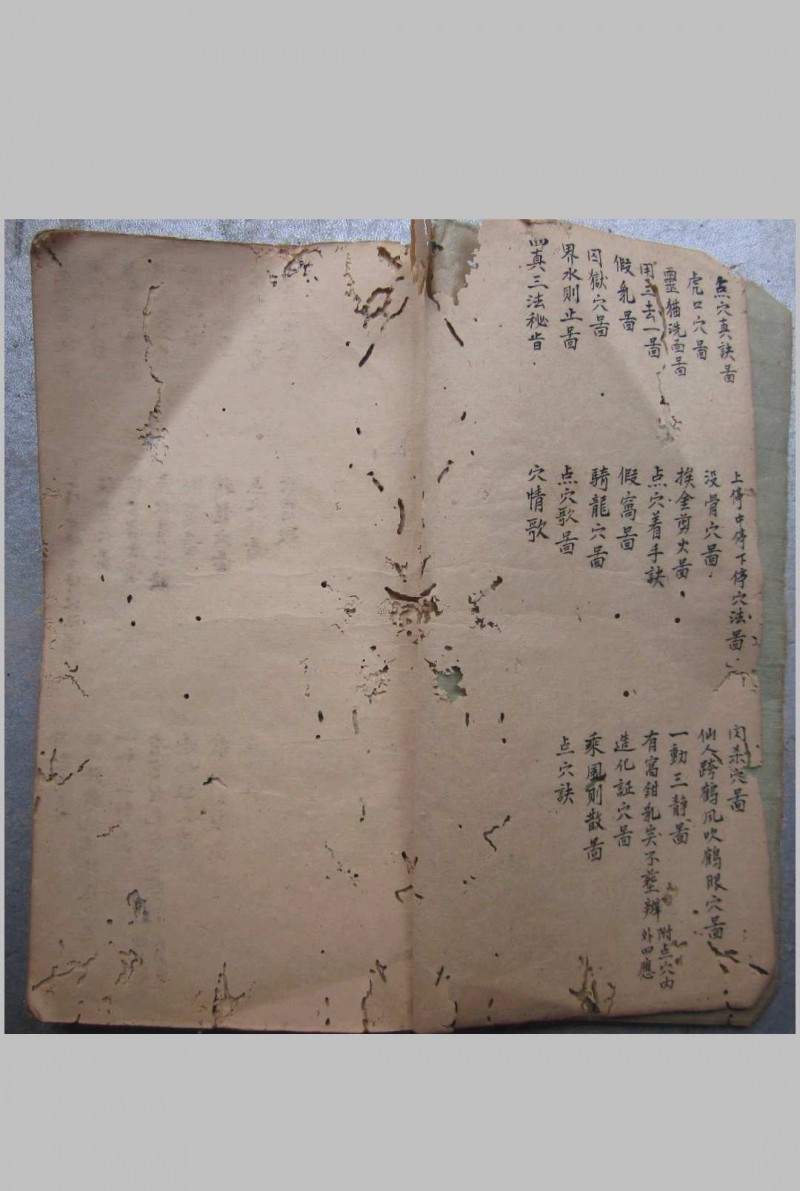 点穴真訣啚
上停中停下停穴法啚
穴啚
虎口穴啚
没骨穴啚
仙人跨鶴風吹鶴眼穴啚
靈猫洗面啚
挨金剪火啚
一動三静啚
用三去一啚
点穴着手訣
有窩鉗乳突不塟辨
附点穴内
外四應
假乳啚
假窩啚
造化証穴啚
囚獄穴啚
騎龍穴啚
乘風則散啚
界水則止啚
点穴歌啚
点穴訣
四真三法秘旨
穴情歌